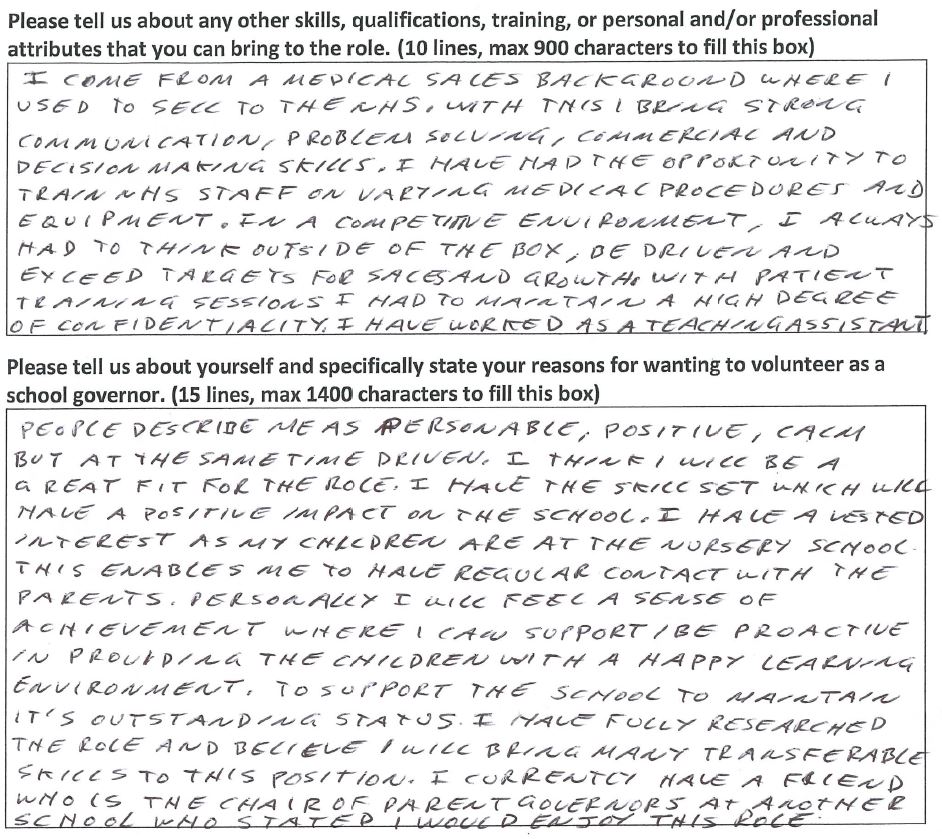 Please tell us about any other skills, qualifications, training, or personal and/or professional
attributes that you can bring to the role. (10 lines, max 900 characters to fill this box)
I COME FROM A MEDICAL SALES BACKGROUND WHERE I
USED TO SELL TO THE NHS. WITH THIS I BRING STRONG
COMMUNICATION, PROBLEM SOLVING, COMMERCIAL AND
DECISION MAKING SKILLS. I HAVE HAD THE OPPORTUNITY TO
TRAIN NHS STAFF ON VARYING MEDICAL PROCEDURES AND
EQUIPMENT. IN A COMPETITIVE ENVIRONMENT, I ALWAYS
HAD TO THINK OUTSIDE OF THE BOX, BE DRIVEN AND
EXCEED TARGETS FOR SALES AND GROWTH. WITH PATIENT
TRAINING SESSIONS I HAD TO MAINTAIN A HIGH DEGREE
OF CONFIDENTIALITY. I HAVE WORKED AS A TEACHING ASSISTANT
Please tell us about yourself and specifically state your reasons for wanting to volunteer as a
school governor. (15 lines, max 1400 characters to fill this box)
PEOPLE DESCRIBE ME AS PERSONABLE, POSITIVE, CALM
BUT AT THE SAME TIME DRIVEN. I THINK I WILL BE A
GREAT FIT FOR THE ROLE. I HAVE THE SKILL SET WHICH WILL
HAVE A POSITIVE IMPACT ON THE SCHOOL. I HAVE A VESTED
INTEREST AS MY CHILDREN ARE AT THE NURSERY SCHOOL.
THIS ENABLES ME TO HAVE REGULAR CONTACT WITH THE
PARENTS. PERSONALLY I WILL FEEL A SENSE OF
ACHIEVEMENT WHERE I CAN SUPPORT/BE PROACTIVE
IN PROVIDING THE CHILDREN WITH A HAPPY LEARNING
ENVIRONMENT. TO SUPPORT THE SCHOOL TO MAINTAIN
IT'S OUTSTANDING STATUS. I HAVE FULLY RESEARCHED
THE ROLE AND BELIEVE I WILL BRING MANY TRANSFERABLE
SKILLS TO THIS POSITION. I CURRENTLY HAVE A FRIEND
WHO IS THE CHAIR OF PARENT GOVERNORS AT ANOTHER
SCHOOL WHO STATED I WOULD ENJOY THIS ROLE.